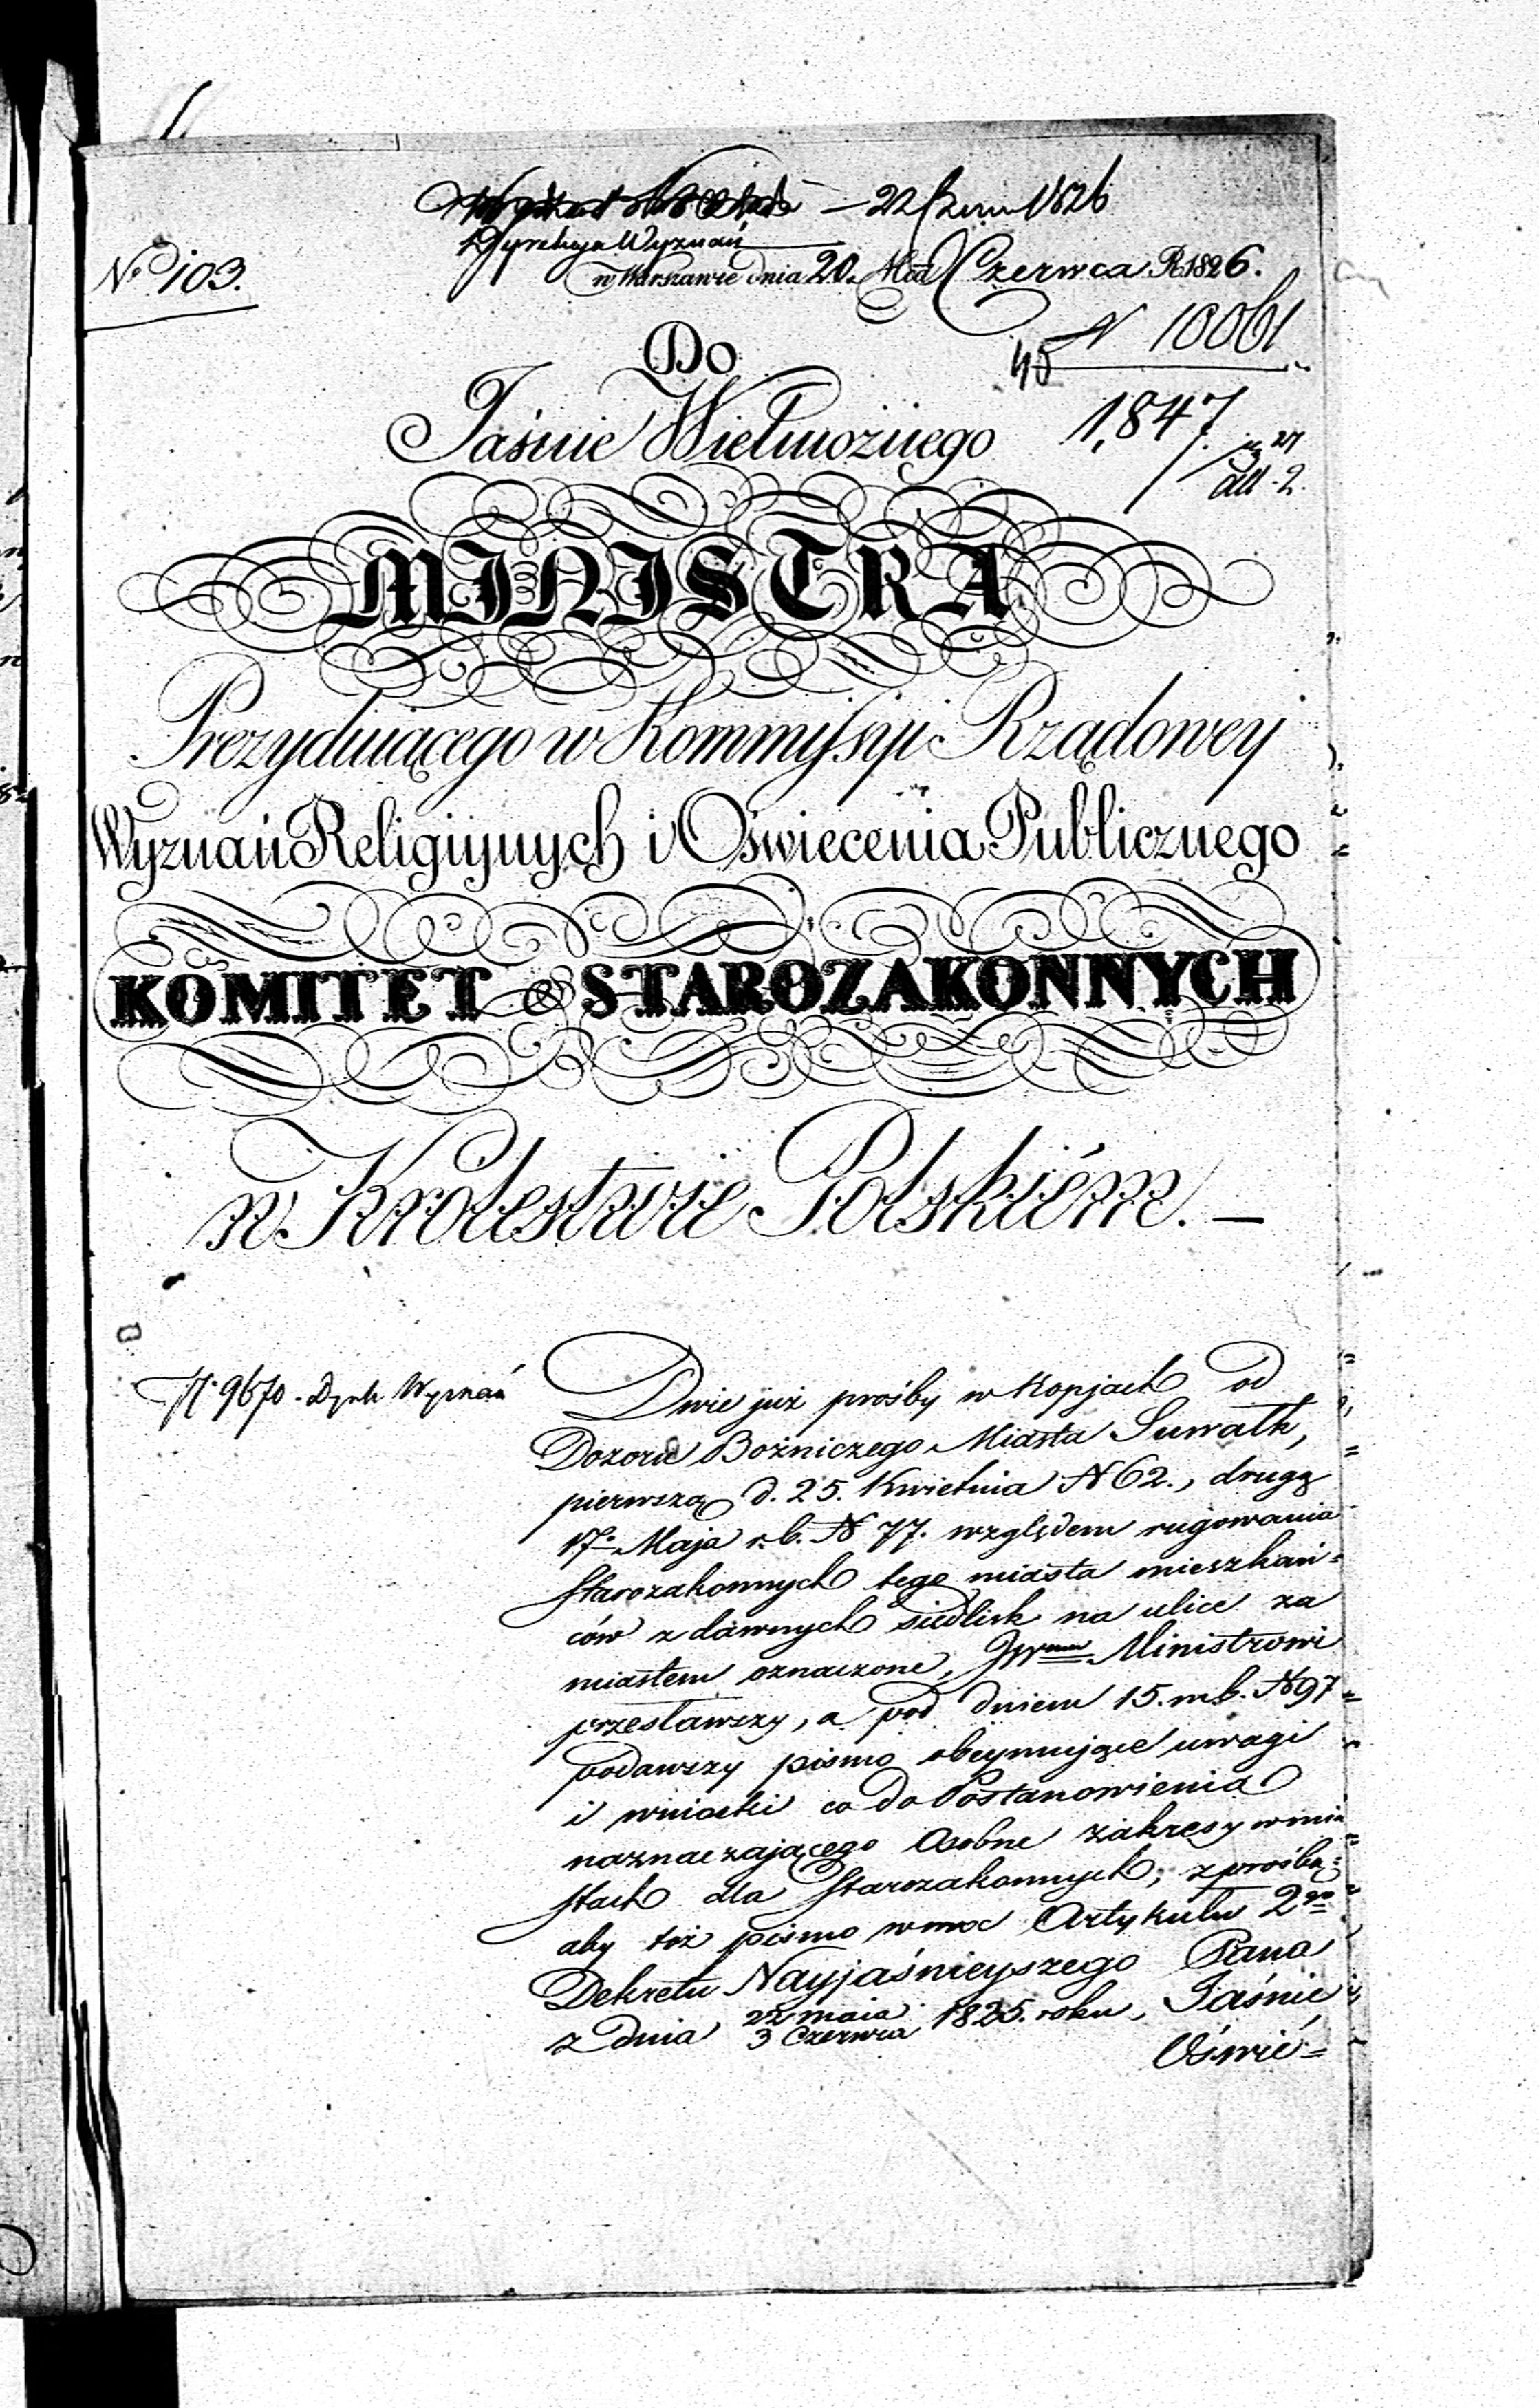 — 22 Czerw 1826
Dyrekcya Wyznań
N° 103.
w Warszawie dnia 20. Mca Czerwca R. 1826.
N 10061
45
Do
1,847
Jaśnie Wielmożnego
27
all. 2.
MINISTRA
Prezyduiącego w Kommissyi Rządowey
Wyznań Religiynych i Oświecenia Publicznego
KOMITET STAROZAKONNYCH
w Królestwie Polskiém. —
N. 9670 - Dyr. Wyznań
Dwie już prośby w Kopjach od
Dozoru Bożniczego Miasta Suwałk,
pierwszą d. 25. Kwietnia N 62., drugą
17° Maja r.b. N 77. względem rugowania
Starozakonnych tego miasta mieszkań=
ców z dawnych siedlisk na ulice za
miastem oznaczone, JW Ministrowi
przesławszy, a pod dniem 15. m.b. N 97
podawszy pismo obeymujące uwagi
i wnioski co do Postanowienia
naznaczającego Osobne zakresy w mia=
stach dla Starozakonnych; z prośbą=
aby toż pismo w moc Artykułu 2go
Dekretu Nayjaśnieyszego Pana
z dnia 22 maia / 3 Czerwca 1825. roku, Jaśnie
Oświé=